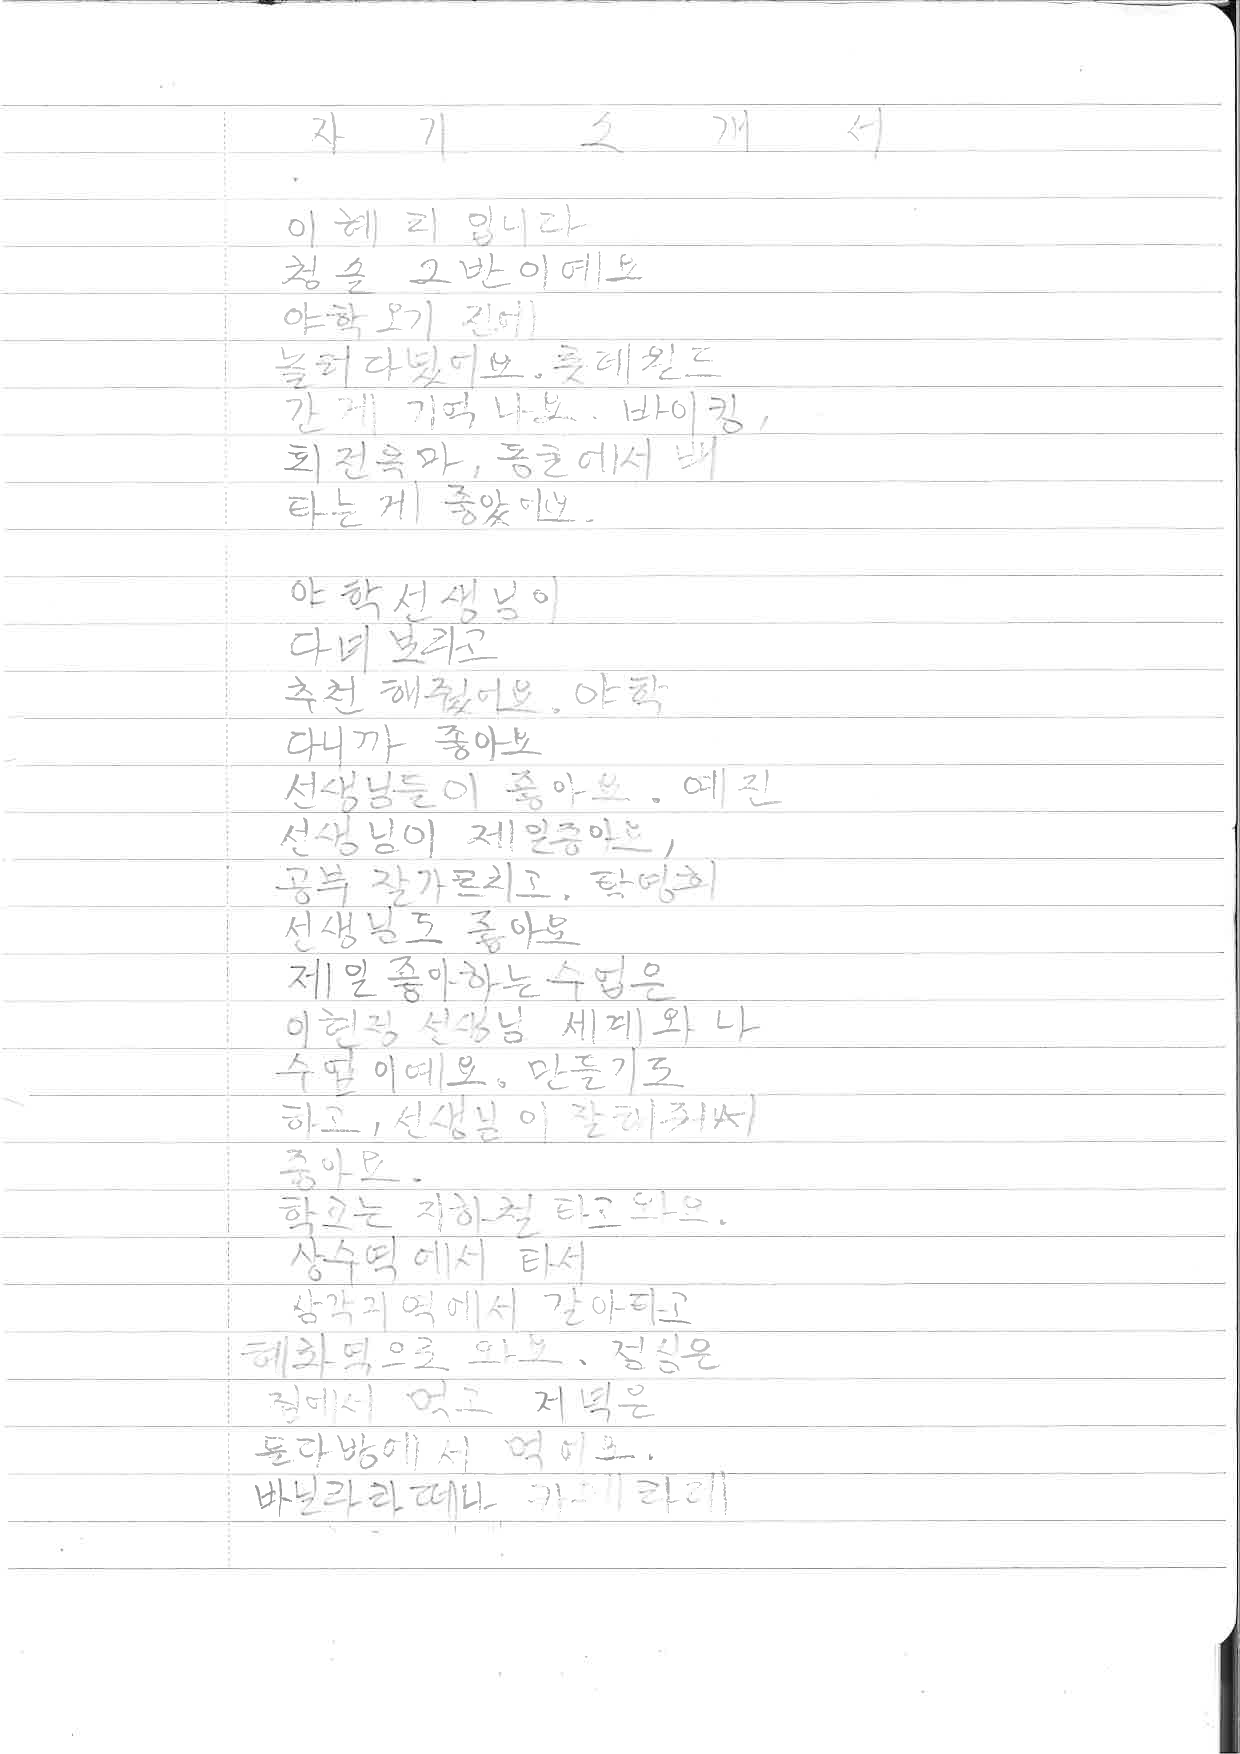 자기 소개서
이혜피입니다
청솔 2반이에요
야학오기 전에
놀러다녔어요. 롯데월드
간게 기억나요. 바이킹,
회전목마, 동굴에서 배
타는게 좋았어요.
야학선생님이
다녀보라고
추천해줬어요. 야학
다니까 좋아요
선생님들이 좋아요. 예진
선생님이 제일좋아요,
공부 잘가르치고. 탁영희
선생님도 좋아요
제일좋아하는수업은
이현정 선생님 세계와나
수업이예요. 만들기도
하고, 선생님이 잘해줘서
좋아요.
학교는 지하철타고와요.
상수역에서 타서
삼각지역에서 갈아타고
혜화역으로 와요. 점심은
집에서 먹고 저녁은
들다방에서 먹어요.
바닐라라떼나 카페라떼